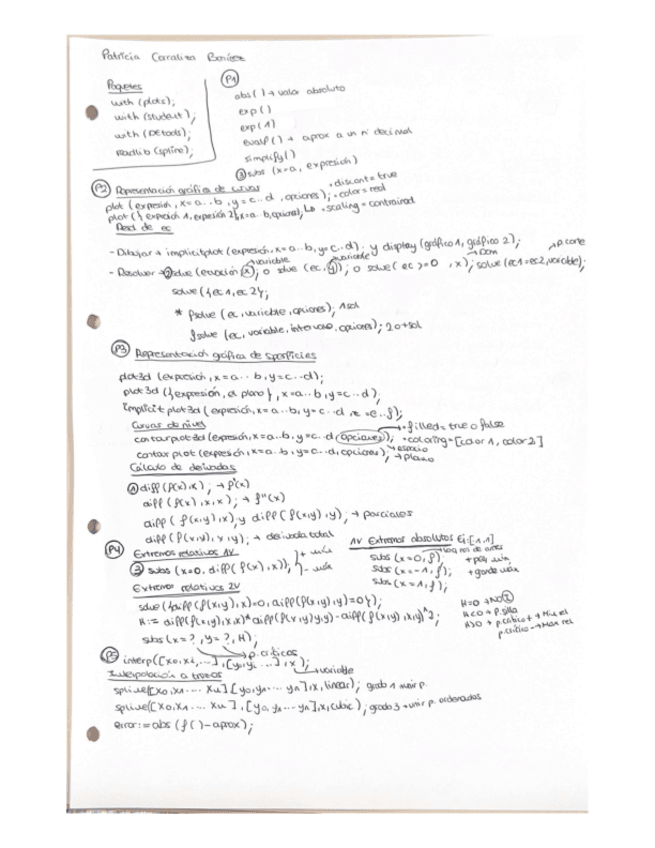 Patricia Carraliza Benítez
Paquetes
with (plots);
with (student);
with (DEtools);
readlib (spline);
P1
abs( ) → valor absoluto
exp( )
exp(1)
evalf( ) → aprox a un nº decimal
simplify( )
③ subs (x=a, expresión)
P2 Representación gráfica de curvas
plot (expresión, x=a..b, y=c..d, opciones); • discont=true • color=red
plot ({expresión 1, expresión 2}, x=a..b, opciones); • scaling=constrained
Resol de ec
- Dibujar → implicitplot (expresión, x=a..b, y=c..d) y display (gráfico 1, gráfico 2);
variable variable Dom p. corte
- Resolver → ② solve (ecuación, x); o solve (ec, y); o solve (ec >=0, x); solve (ec1=ec2, variable);
solve ({ec1, ec2});
* fsolve (ec, variable, opciones); 1 sol
fsolve (ec, variable, intervalo, opciones); 2 o + sol
P3 Representación gráfica de superficies
plot3d (expresión, x=a..b, y=c..d);
plot3d ({expresión, el plano}, x=a..b, y=c..d);
implicitplot3d (expresión, x=a..b, y=c..d, z=e..f);
Curvas de nivel
• filled=true o false
contourplot3d (expresión, x=a..b, y=c..d, opciones); • coloring=[color1, color2]
→ espacio
contourplot (expresión, x=a..b, y=c..d, opciones); → plano
Cálculo de derivadas
① diff (f(x),x); → f'(x)
diff (f(x),x,x); → f''(x)
diff (f(x,y),x) y diff (f(x,y),y); → parciales
diff (f(x,y),x,y); → derivada total
P4 Extremos relativos 1V
③ subs (x=0, diff(f(x),x)); + mín - máx
1V Extremos absolutos Ej: [-1,1]
subs (x=0, f);
subs (x=-1, f); + peq mín
subs (x=1, f); + grande máx
Extremos relativos 2V
solve ({diff(f(x,y),x)=0, diff(f(x,y),y)=0});
H:= diff(f(x,y),x,x)*diff(f(x,y),y,y)-diff(f(x,y),x,y)^2;
H=0 → NO I
H<0 → p. silla
H>0 → p. crítico + → Min rel
p. crítico - → Max rel
subs (x=?, y=?, H);
p. críticos
P5 interp([x0,x1,...],[y0,y1...],x);
variable
Interpolación a trozos
spline([x0,x1...xn],[y0,y1...yn],x,linear); grado 1 unir p.
spline([x0,x1...xn],[y0,y1...yn],x,cubic); grado 3 → unir p. ordenados
error:=abs (f( )-aprox);